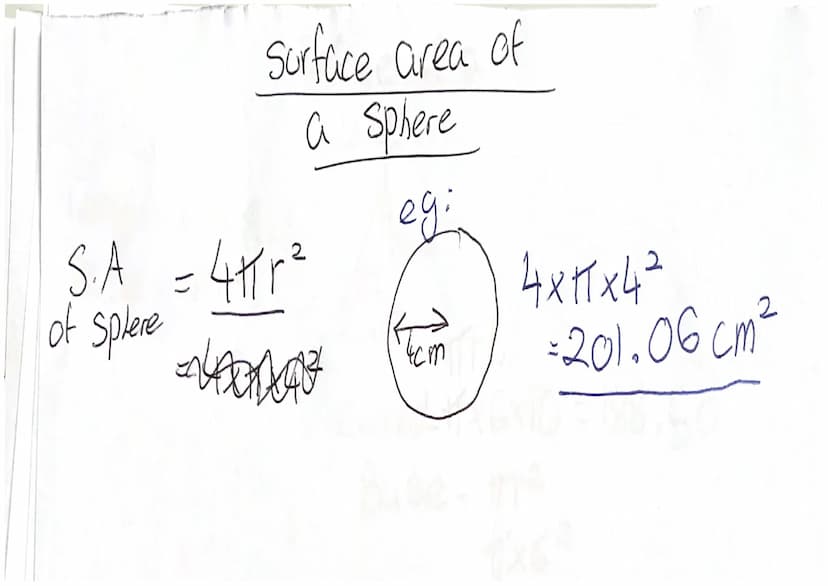 Surface area of
a Sphere
eg:
S.A
of sphere
= 4πr²
4cm
4×π×4²
=201.06 cm²